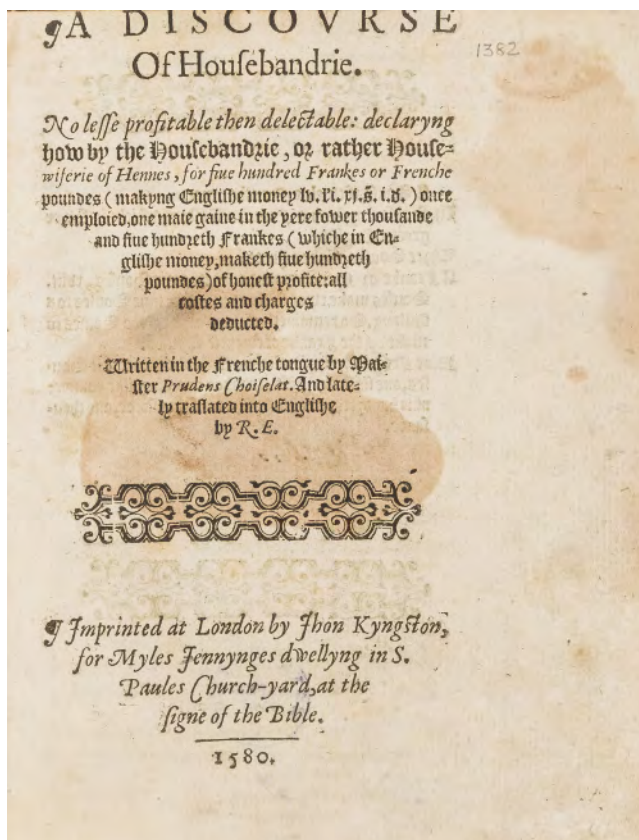 ¶A DISCOVRSE
Of Houſebandrie.
1382
No leſſe profitable then delectable: declaryng
how by the Houſebandrie, or rather Houſe-
wiferie of Hennes, for fiue hundred Frankes or Frenche
poundes (makyng Engliſhe money lv. l'i. xj. s̃. i. d.) once
emploied, one maie gaine in the yere fower thouſande
and fiue hundreth Frankes (whiche in En-
gliſhe money, maketh fiue hundreth
poundes) of honeſt profite: all
coſtes and charges
deducted.
Written in the Frenche tongue by Mai-
ſter Prudens Choiſelat. And late-
ly traſlated into Engliſhe
by R. E.
¶ Imprinted at London by Jhon Kyngſton,
for Myles Jennynges dwellyng in S.
Paules Church-yard, at the
ſigne of the Bible.
1580.